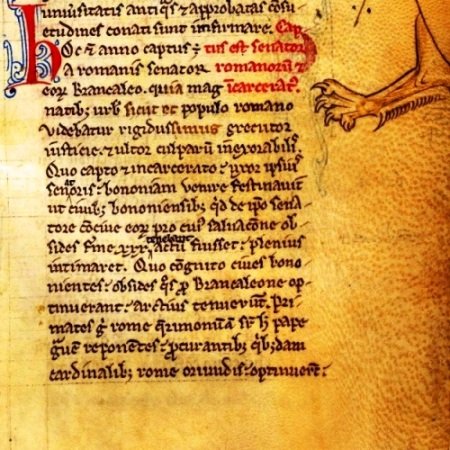 uniuersitatis antiqͣs ⁊ approbatas cōsu-
etudines conati sunt infirmare. Cap
Hoc ⁊ anno captus ⁊ tus est senator
a romanis senator romanorū ⁊
eoꝝ Brancaleo. quia mag incarcerat᷒.
natibꝫ urbꝭ sicut et populo romano
videbatur rigidissimus executor
iusticie. ⁊ ultor culparū inexorabilis.
Quo capto ⁊ incarcerato. uxor ipsius
senatoris. bononiam venire festinauit
ut ciuibꝫ bononiensibꝫ qd de ipō sena
tore cōciue eoꝝ pro cuiꝰ saluacōne ob-
sides sine .xxx. tenebant᷒ actū fuisset. plenius
intimaret. Quo cōgnito ciues bono
nientes. obsides qͦs ꝓ Brancaleone op-
tinuerant. arctius tenuerūt. Pri-
mates gͦ rome qͥrimoniā sr̄ h̄ pape
reponentes. ꝓcurantibꝫ qͥbꝫdam
cardinalibꝫ rome oriundis. optinuerūt.